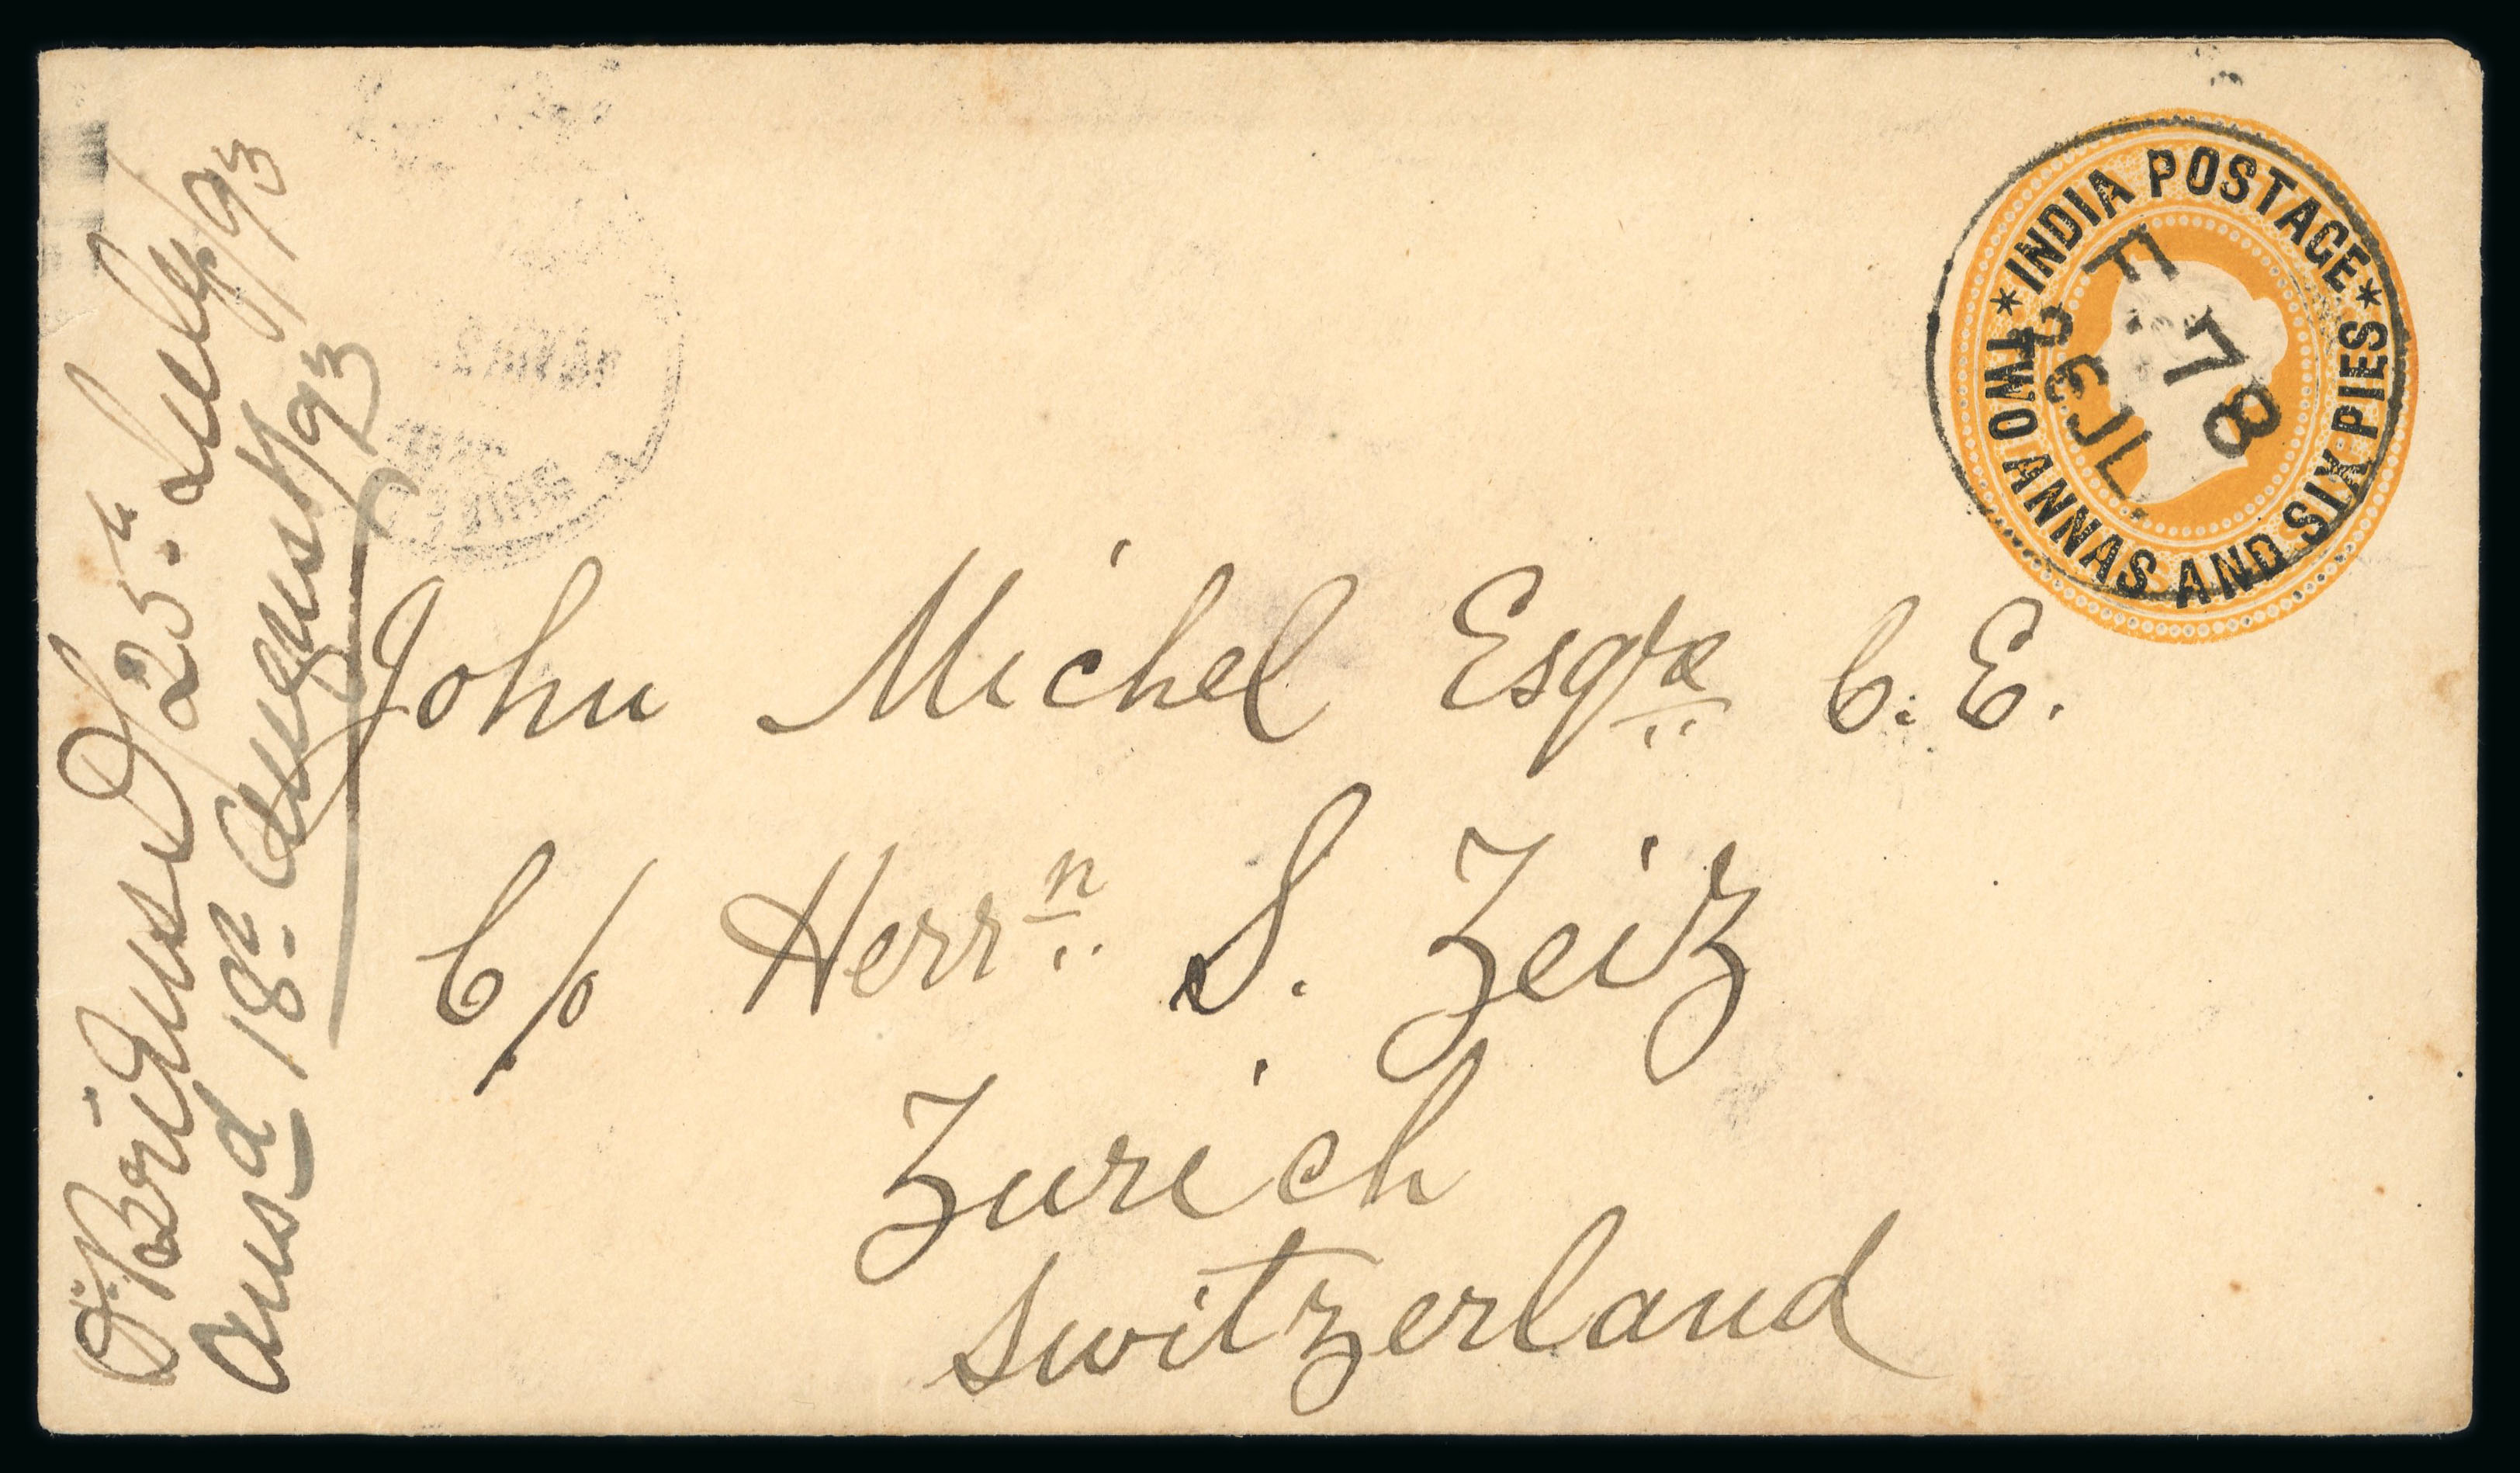 * INDIA POSTAGE *
TWO ANNAS AND SIX PIES
78
JL
John Michel Esqre C. E.
C/o Herrn S. Zeiz
Zurich
Switzerland
25. July/93
18. August/93